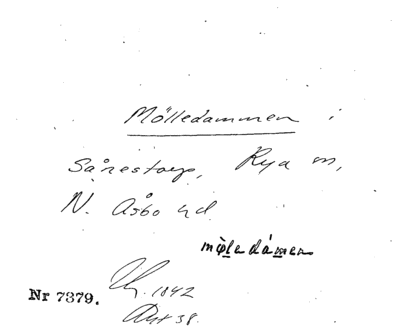 Mölledammen i
Sånestorp, Rya sn,
N. Åsbo hd
möledámen
Nr 7379. 1842